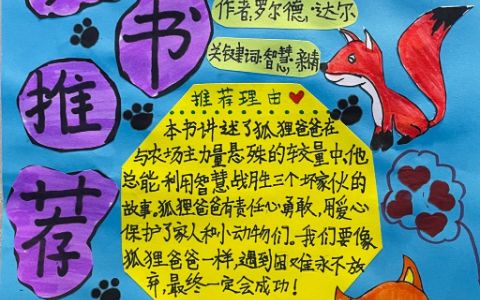 书
推
荐
作者,罗尔德·达尔
关键词:智慧,亲情
推荐理由
本书讲述了狐狸爸爸在
与农场主力量悬殊的较量中,他
总能利用智慧战胜三个坏家伙的
故事。狐狸爸爸有责任心勇敢,用爱心
保护了家人和小动物们。我们要像
狐狸爸爸一样,遇到困难永不放
弃,最终一定会成功!